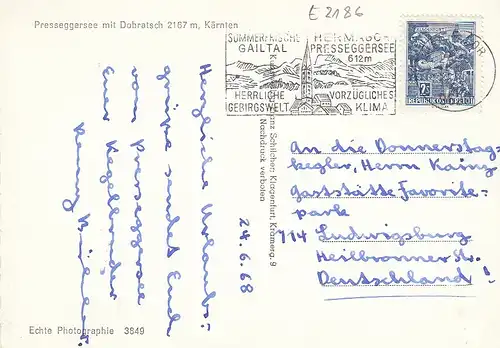 Presseggersee mit Dobratsch 2167 m, Kärnten
E 2186
SOMMERFRISCHE
GAILTAL
HERMAGOR
PRESSEGGERSEE
612m
HERRLICHE
GEBIRGSWELT
VORZÜGLICHES
KLIMA
2S
REPUBLIK ÖSTERREICH
Herzliche Urlaubs-
grüße sendet Euch
vom Presseggersee
Euer Kegelbruder
24.6.68
Franz Schilcher, Klagenfurt, Krämerg. 9
Nachdruck verboten
An die Donnerstag-
kegler, Herrn Kainz
Gaststätte Favorite-
park
714 Ludwigsburg
Heilbronner Str.
Deutschland!
Echte Photographie 3849